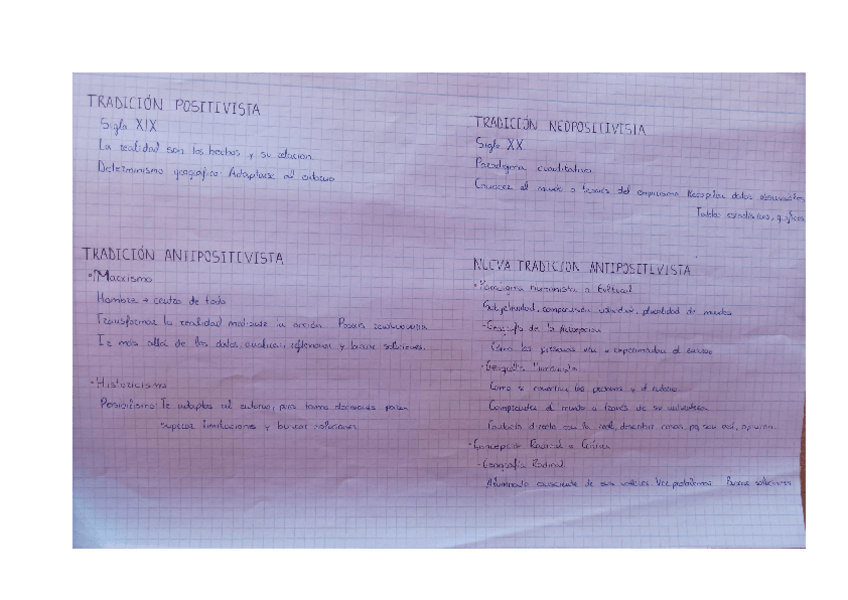 TRADICIÓN POSITIVISTA
Siglo XIX
La realidad son los hechos y su relación
Determinismo geográfico: Adaptarse al entorno
TRADICIÓN ANTIPOSITIVISTA
- Marxismo
Hombre → centro de todo
Transformar la realidad mediante la acción
Ir más allá de los datos, analizar, reflexionar y buscar soluciones.
- Historicismo
Posibilismo: Te adaptas al entorno, pero tomas decisiones para
superar limitaciones y buscar soluciones
TRADICIÓN NEOPOSITIVISTA
Siglo XX
Paradigma cuantitativo
Conocer el mundo a través del empirismo Recopilar datos
Tablas estadísticas, gráficos
NUEVA TRADICIÓN ANTIPOSITIVISTA
- Paradigma humanista o Cultural
Subjetividad, comprensión, pluralidad de mundos
- Geografía de la Percepción
Cómo las personas ven o experimentan el entorno
- Geografía Humanista
Cómo se las personas y el entorno
Comprender el mundo a través de su
Contacto directo con lo real, describir cómo, por qué es así, opinión.
- Concepción Radical o Crítica
- Geografía Radical
Alumnado consciente de sus valores. Ver problemas. Buscar soluciones